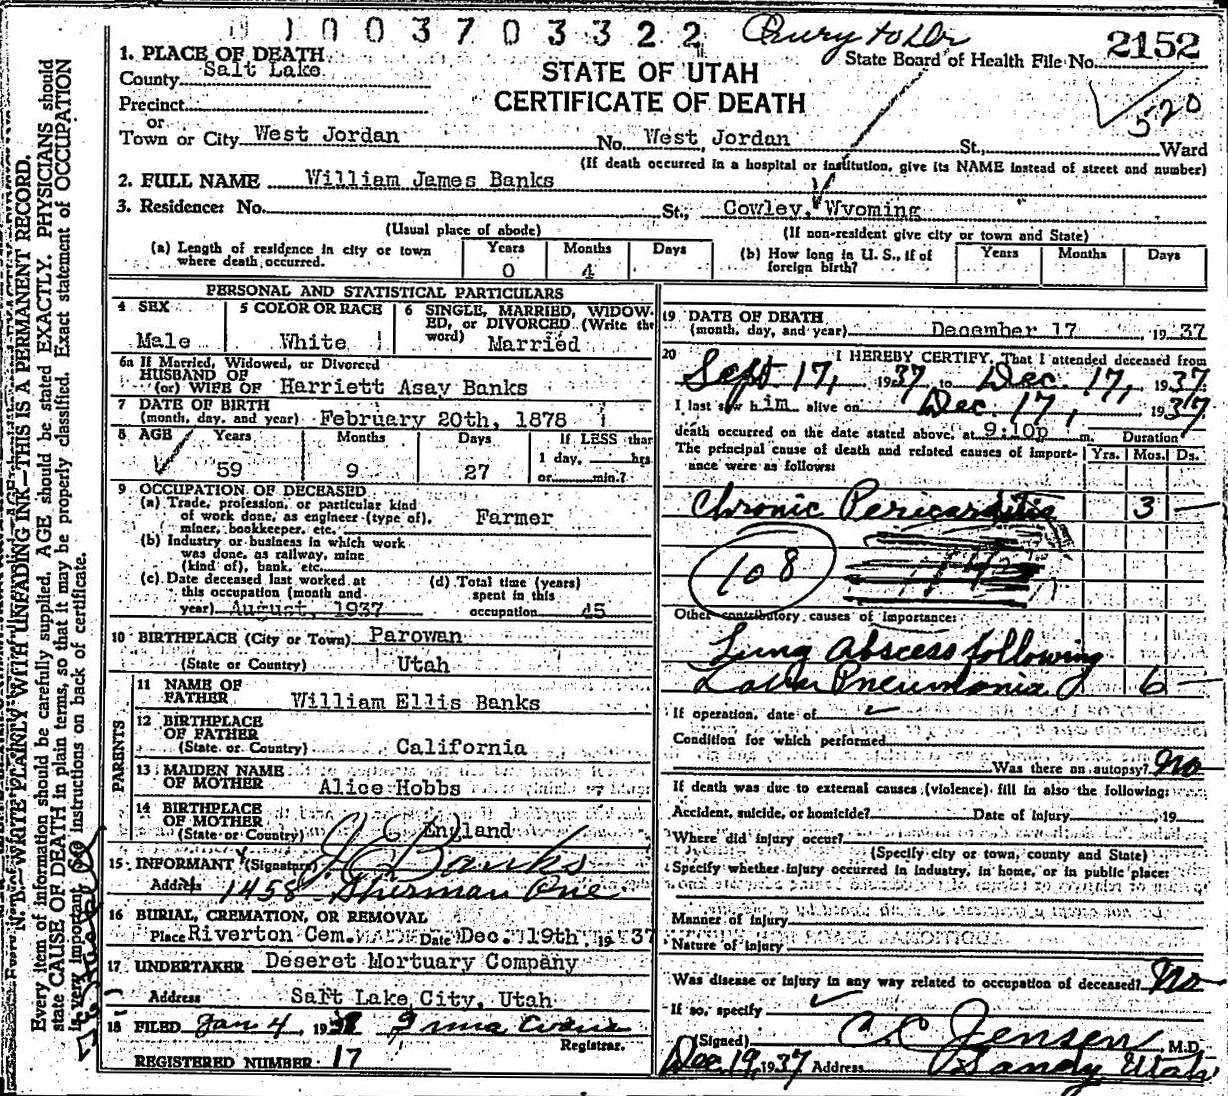 1003703322
2152
State Board of Health File No.
520
STATE OF UTAH
CERTIFICATE OF DEATH
1. PLACE OF DEATH
County Salt Lake
Precinct
or
Town or City West Jordan No. West Jordan St., Ward
(If death occurred in a hospital or institution, give its NAME instead of street and number)
2. FULL NAME William James Banks
3. Residence: No. St., Cowley, Wyoming
(Usual place of abode) (If non-resident give city or town and State)
(a) Length of residence in city or town where death occurred. Years 0 Months 4 Days
(b) How long in U. S., if of foreign birth? Years Months Days
PERSONAL AND STATISTICAL PARTICULARS
4 SEX Male
5 COLOR OR RACE White
6 SINGLE, MARRIED, WIDOWED, or DIVORCED (Write the word) Married
6a If Married, Widowed, or Divorced
HUSBAND OF
(or) WIFE OF Harriett Asay Banks
7 DATE OF BIRTH
(month, day, and year) February 20th, 1878
8 AGE Years 59 Months 9 Days 27 If LESS than 1 day, hrs or min.?
9 OCCUPATION OF DECEASED
(a) Trade, profession, or particular kind of work done, as engineer (type of), miner, bookkeeper, etc. Farmer
(b) Industry or business in which work was done, as railway, mine (kind of), bank, etc.
(c) Date deceased last worked at this occupation (month and year) August, 1937
(d) Total time (years) spent in this occupation 45
10 BIRTHPLACE (City or Town) Parowan
(State or Country) Utah
PARENTS
11 NAME OF FATHER William Ellis Banks
12 BIRTHPLACE OF FATHER
(State or Country) California
13 MAIDEN NAME OF MOTHER Alice Hobbs
14 BIRTHPLACE OF MOTHER
(State or Country) England
15 INFORMANT (Signature) Banks
Address 1458 Sherman Ave
16 BURIAL, CREMATION, OR REMOVAL
Place Riverton Cem. Date Dec. 19th, 1937
17 UNDERTAKER Deseret Mortuary Company
Address Salt Lake City, Utah
18 FILED Jan 4, 1938 Irma Evans
Registrar.
REGISTERED NUMBER 17
19 DATE OF DEATH
(month, day, and year) December 17, 1937
20 I HEREBY CERTIFY, That I attended deceased from
Sept. 17, 1937 to Dec. 17, 1937
I last saw him alive on Dec. 17, 1937
death occurred on the date stated above, at 9:10p m. Duration
The principal cause of death and related causes of importance were as follows: Yrs. Mos. Ds.
Chronic Pericarditis 3
108
Other contributory causes of importance:
Lung Abscess following
Lobar Pneumonia 6
If operation, date of
Condition for which performed
Was there an autopsy? No
If death was due to external causes (violence) fill in also the following:
Accident, suicide, or homicide? Date of Injury 19
Where did injury occur?
(Specify city or town, county and State)
Specify whether injury occurred in industry, in home, or in public place:
Manner of Injury
Nature of Injury
Was disease or injury in any way related to occupation of deceased? No
If so, specify
(Signed) C. C. Jensen M.D.
Dec. 19, 1937 Address Sandy Utah
N. B.—WRITE PLAINLY WITH UNFADING INK—THIS IS A PERMANENT RECORD.
Every item of information should be carefully supplied. AGE should be stated EXACTLY. PHYSICIANS should
state CAUSE OF DEATH in plain terms, so that it may be properly classified. Exact statement of OCCUPATION
is very important. See instructions on back of certificate.